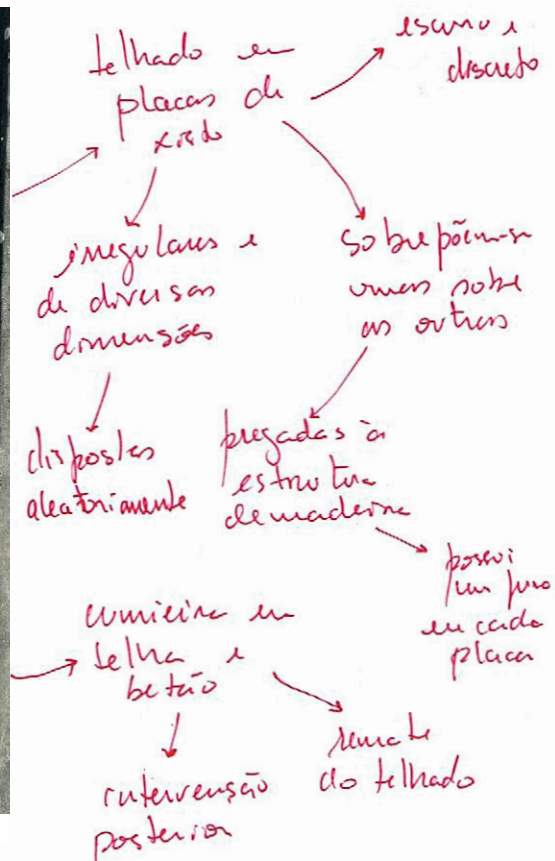 telhado em
placas de
xisto
escuro e
discreto
irregulares e
de diversas
dimensões
sobrepõem-se
umas sobre
as outras
dispostas
aleatoriamente
pregadas à
estrutura
de madeira
possui
um furo
em cada
placa
cumieira em
telha e
betão
intervenção
posterior
remate
do telhado